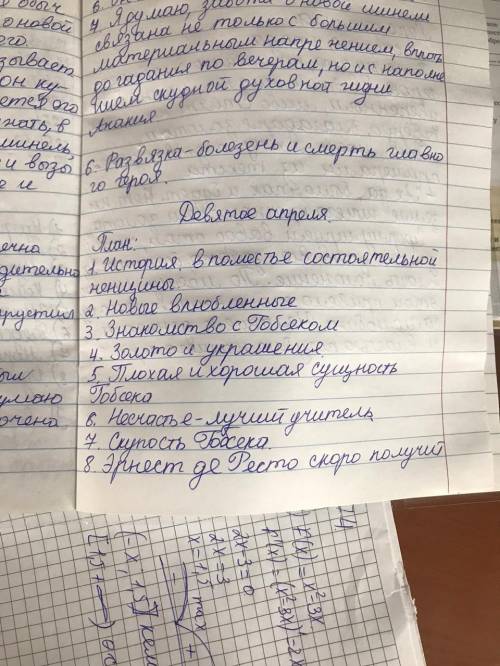 обыч
о новой
ого.
зывает
он ку-
жать, в
шинель
и вызы
е и
ечно
дительно
грустил
ым
думаю
ючено
7. Я думаю, забота о новой шинели
связана не только с большим
материальным напрежением, вплоть
до гадания по вечерам, но и с наполне
нием скудной духовной жизни
Акакия
6- Развязка - болезень и смерть главно
го героя.
Девятое апреля.
План:
1. История, в поместье состоятельной
женщины.
2. Новые влюбленные
3. Знакомство с Гобсеком
4. Золото и украшения.
5. Плохая и хорошая сущность
Гобсека
6. Несчастье - лучший учитель
7. Скупость Гобсека.
8. Эрнест де Ресто скоро получит
f(x) = x²-3x
f'(x) = (x²-3x)' = 2x
2x-3=0
2x=3
x=1,5 max